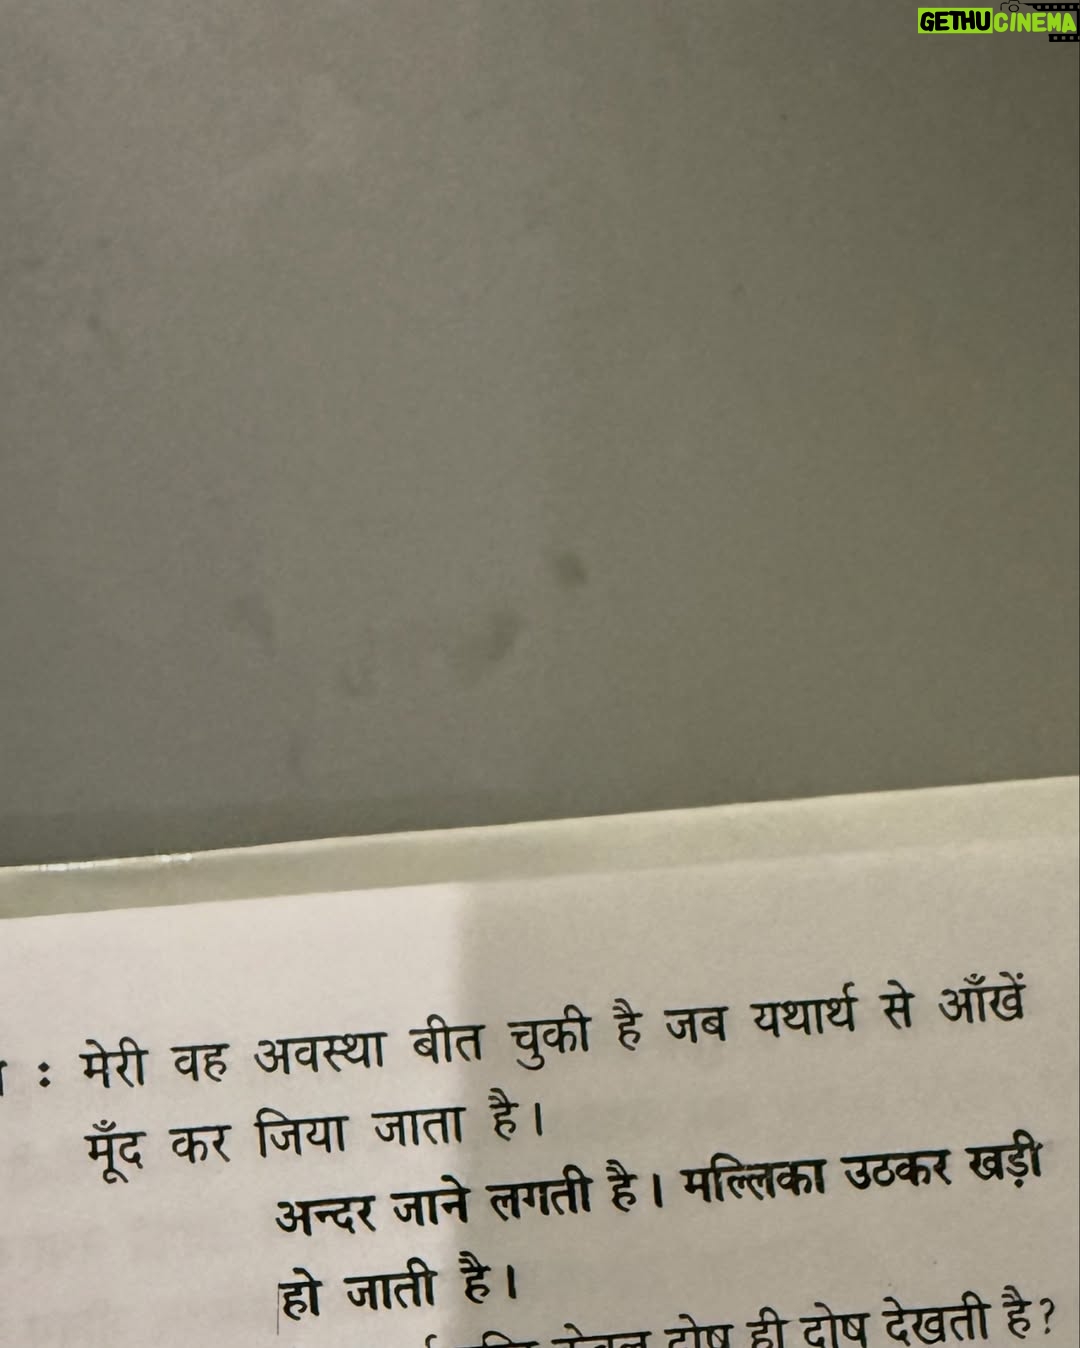 GETHUCINEMA
: मेरी वह अवस्था बीत चुकी है जब यथार्थ से आँखें
मूँद कर जिया जाता है।
अन्दर जाने लगती है। मल्लिका उठकर खड़ी
हो जाती है।
दोष ही दोष देखती है?